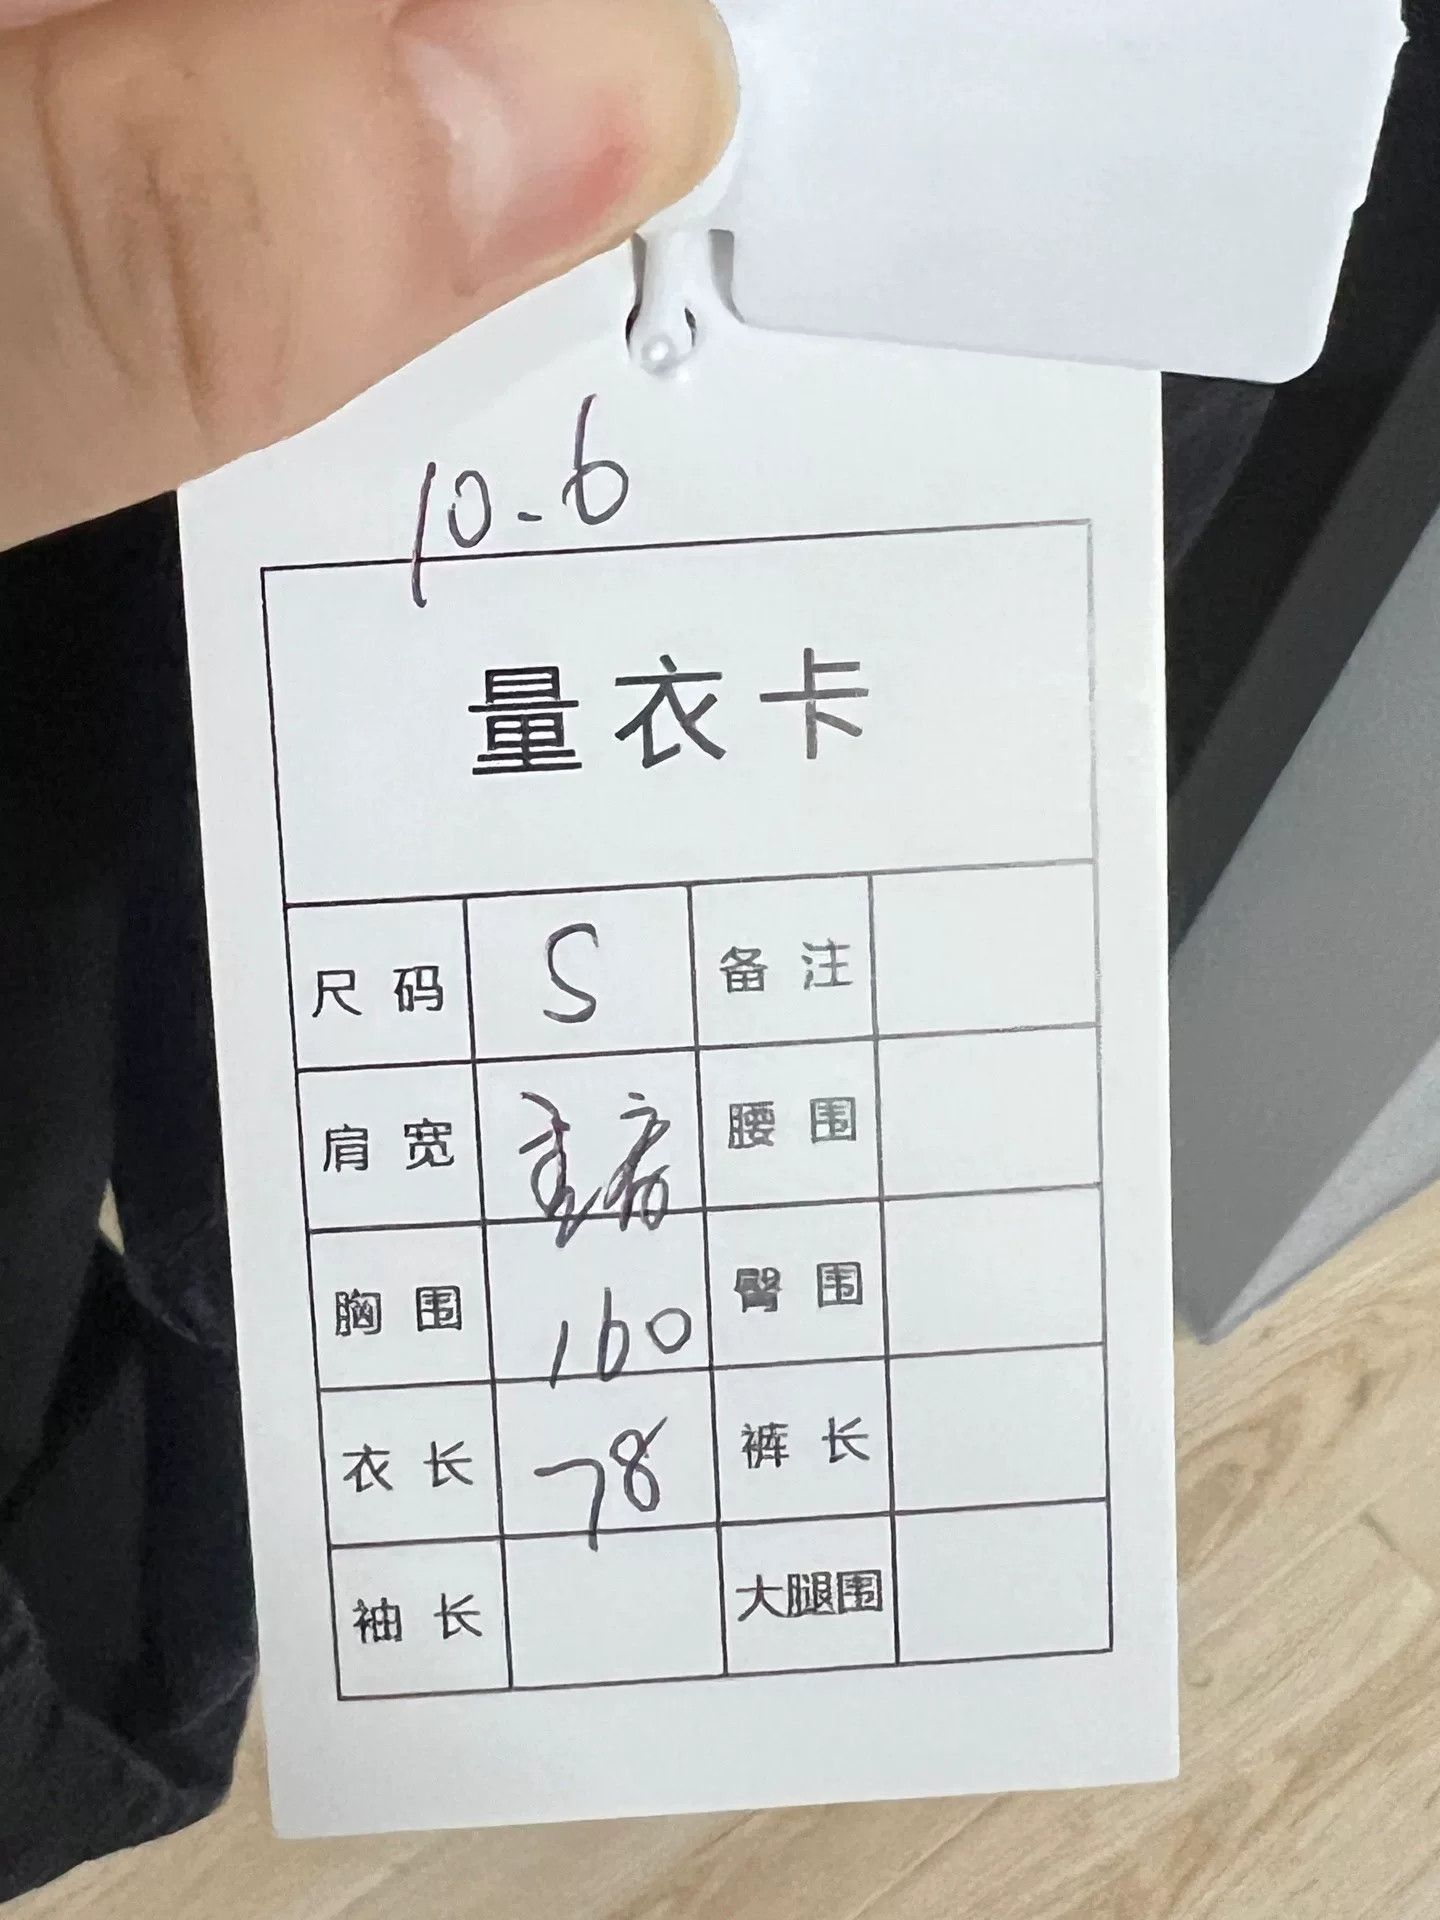 10.6
量衣卡
尺码 S 备注
肩宽 腰围
胸围 160 臀围
衣长 78 裤长
袖长 大腿围